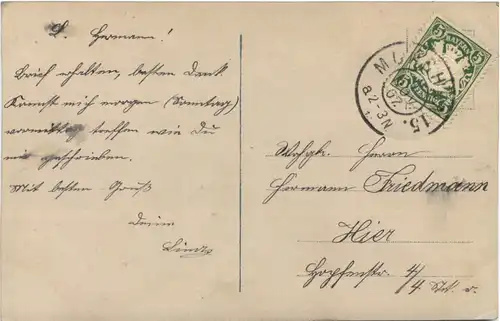 L. Hermann!
Brief erhalten, besten Dank
Kannst mich morgen (Sonntag)
vormittag treffen wie Du
mir geschrieben.
Mit besten Gruß
deine
MÜNCHEN
15.
a 2-3 N
BAYERN
5 5
Wohlgb. Herrn
Hermann Friedmann
Hier
Hopfenstr. 4/
4. Stk. r.